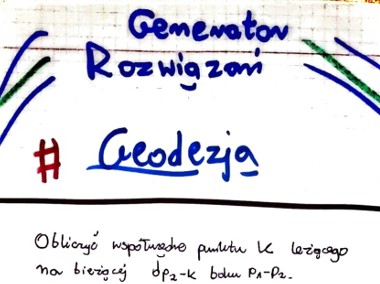 Generator
Rozwiązań
# Geodezja
Obliczyć współrzędne punktu K leżącego
na bieżącej dp2-k boku P1-P2.